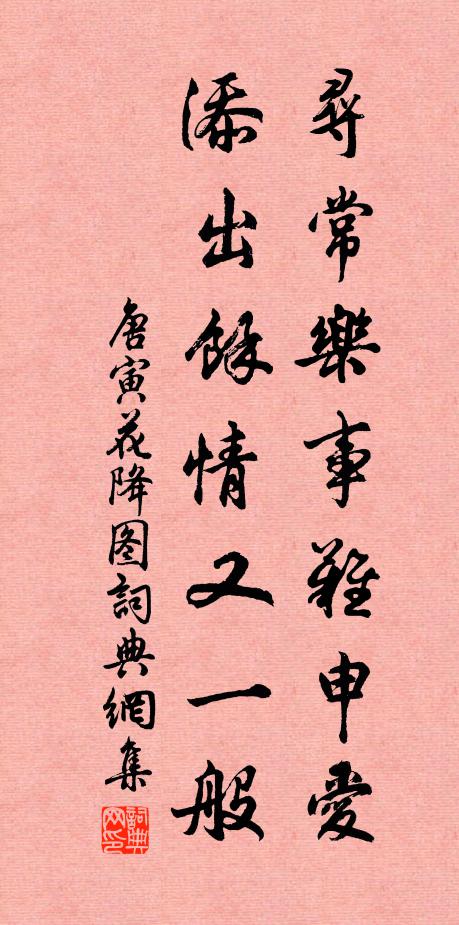 尋常樂事難申愛
添出餘情又一般
唐寅花降图詞典網集
詞典网印